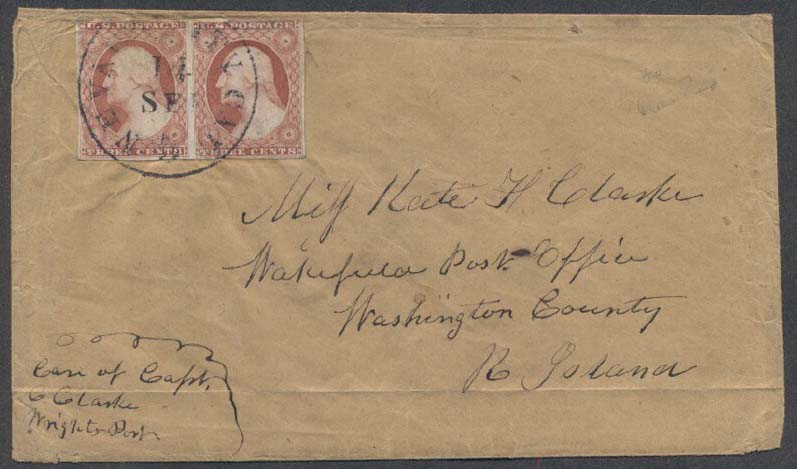 U.S. POSTAGE U.S. POSTAGE
NEVADA CITY
14
SEP
THREE CENTS THREE CENTS
Miss Kate H Clarke
Wakefield Post Office
Washington County
R Island
Care of Capt.
C Clarke